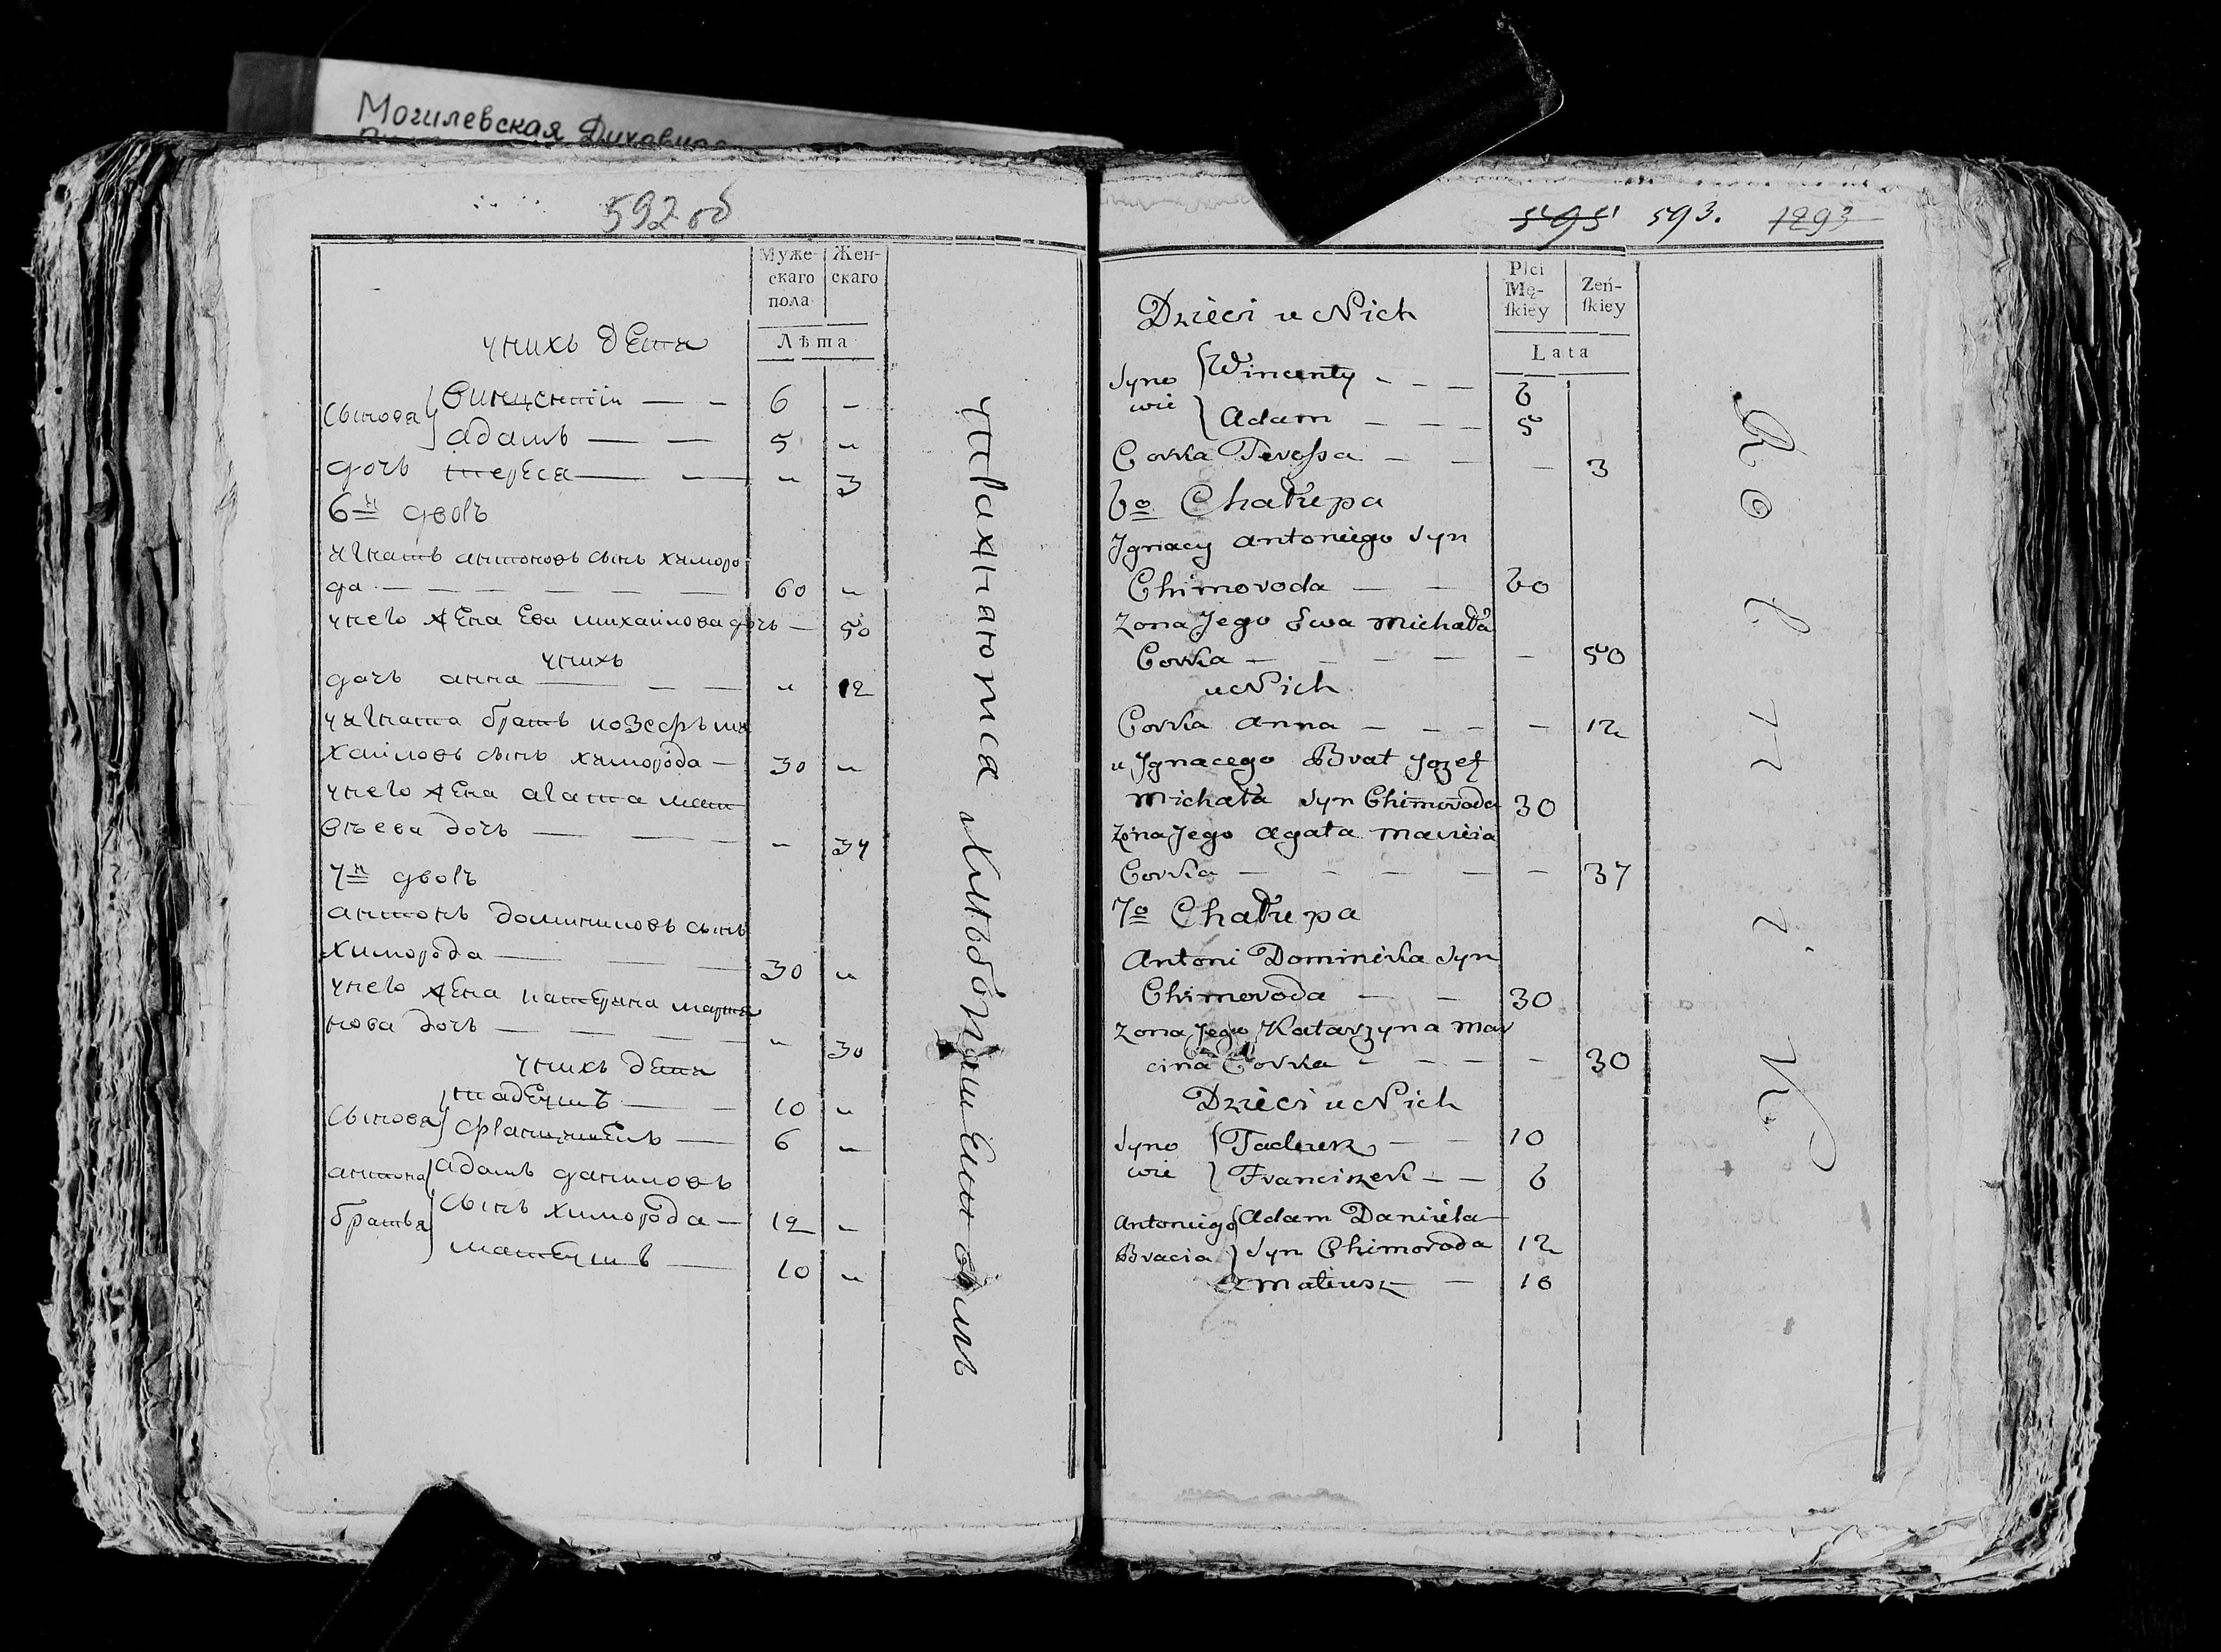 Могилевская Духовная
592 об
Муже-
скаго
пола
Жен-
скаго
Лѣта
унихъ дети
Сынова
винцентій — — 6 —
адамъ — — 5 "
дочь тереса — — " 3
6й дворъ
игнатъ антоновъ сынъ химоро
да — — — — — — 60 "
унего жена ева михаилова дочь — 50
унихъ
дочь анна — — — " 12
уигната братъ иозефъ ми
хаиловъ сынъ химорода — 30 "
унего жена агата мат
вѣева дочь — — — " 37
7й дворъ
антонъ доминиковъ сынъ
химорода — — — 30 "
унего жена катерина марти
нова дочь — — — " 30
унихъ дети
Сынова
тадеушъ — — 10 "
францишекъ — 6 "
антона
братья
адамъ даниловъ
сынъ химорода — 12 "
матеушъ — 10 "
упражняютса
хлѣбопашествомъ
595 593. 1293
Płci
Mę-
skiey
Żeń-
skiey
Lata
Dzieci u Nich
Syno
wie
Wincenty - - — 6
Adam — - - — 5
Corka Teressa — — — 3
6o Chałupa
Ignacy Antoniego Syn
Chimoroda — — 60
Zona Jego Ewa Michała
Corka — — — — — 50
u Nich
Corka Anna — — - - — 12
u Ignacego Brat Jozef
Michała Syn Chimoroda 30
Zona Jego Agata Macieia
Corka — — — — — — 37
7o Chałupa
Antoni Dominika Syn
Chimoroda — — 30
Zona Jego Katarzyna Mar
cina Corka — — — — — 30
Dzieci u Nich
Syno
wie
Tadeusz — — 10
Franciszek — — 6
Antoniego
Bracia
Adam Daniela
Syn Chimoroda 12
Mateusz — — 10